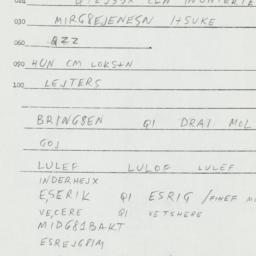 030 MIRG8EJENESN /+SUKE
060 QZZ
090 HUN CM LOKS+N
100 LEJTERS
BRING8EN QI DRAI MOL
GOJ
LULEF LULOF LULEF
INDERHEJX
E,SERIK QI ESRIG /FIHEF
VE,CERE QI VETSHERE
MIDG81BAKT
ESREJGRIM